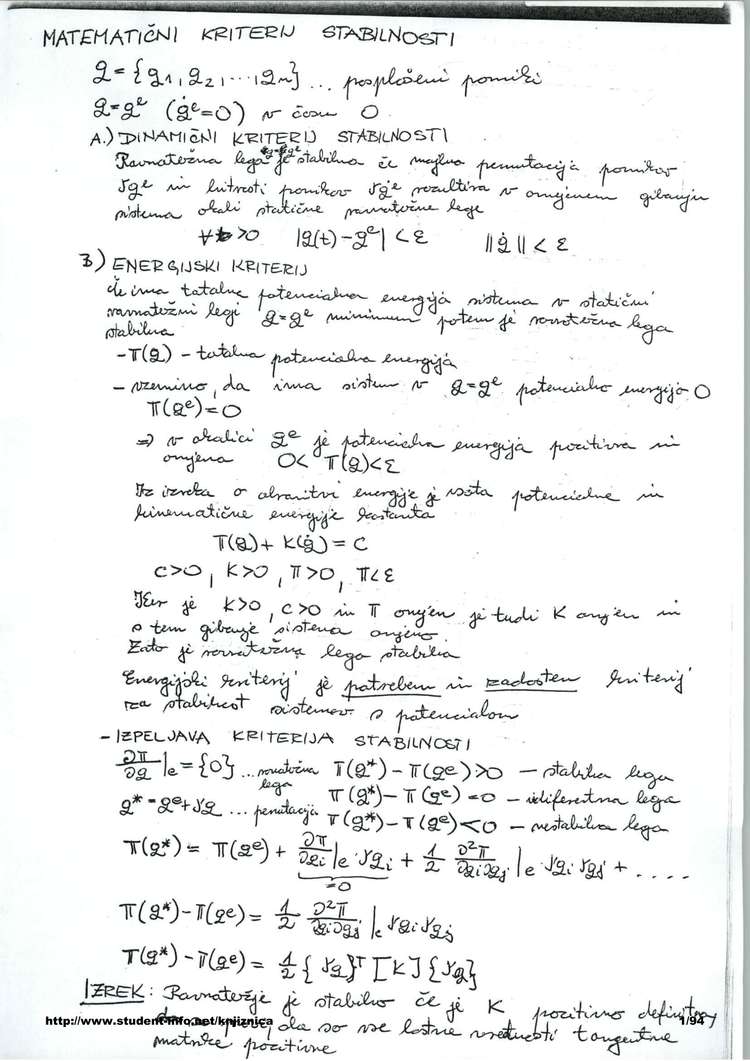 MATEMATIČNI KRITERIJ STABILNOSTI
q = {q1, q2, ..., qn} ... posplošeni pomiki
q = qᵉ (q̇ᵉ=0) v času 0
A.) DINAMIČNI KRITERIJ STABILNOSTI
Ravnotežna lega q=qᵉ je stabilna če majhna perturbacija pomikov
δqᵉ in hitrosti pomikov δq̇ᵉ rezultira v omejenem gibanju
sistema okoli statične ravnotežne lege
∀ t>0 |q(t) - qᵉ| < ε ||q̇|| < ε
B) ENERGIJSKI KRITERIJ
Če ima totalna potencialna energija sistema v statični
ravnotežni legi q=qᵉ minimum potem je ravnotežna lega
stabilna
- Π(q) - totalna potencialna energija
- vzemimo, da ima sistem v q=qᵉ potencialno energijo 0
Π(qᵉ) = 0
⇒ v okolici qᵉ je potencialna energija pozitivna in
omejena 0 < Π(q) < ε
Iz izreka o ohranitvi energije je vsota potencialne in
kinematične energije konstanta
Π(q) + K(q̇) = C
C>0, K>0, Π>0, Π<ε
Ker je K>0, C>0 in Π omejen je tudi K omejen in
s tem gibanje sistema omejeno.
Zato je ravnotežna lega stabilna
Energijski kriterij je potreben in zadosten kriterij
za stabilnost sistemov s potencialom
- IZPELJAVA KRITERIJA STABILNOSTI
∂Π/∂q |e = {0} ... ravnotežna lega Π(q*) - Π(qᵉ) > 0 - stabilna lega
Π(q*) - Π(qᵉ) = 0 - indiferentna lega
q* = qᵉ + δq ... perturbacija Π(q*) - Π(qᵉ) < 0 - nestabilna lega
Π(q*) = Π(qᵉ) + ∂Π/∂qi |e δqi + 1/2 ∂²Π/∂qi∂qj |e δqi δqj + ....
=0
Π(q*) - Π(qᵉ) = 1/2 ∂²Π/∂qi∂qj |e δqi δqj
Π(q*) - Π(qᵉ) = 1/2 {δq}ᵀ [K] {δq}
IZREK: Ravnotežje je stabilno če je K pozitivno definitna
da so vse lastne vrednosti tangentne
http://www.student-info.net/knjiznica 1/94
matrike pozitivne